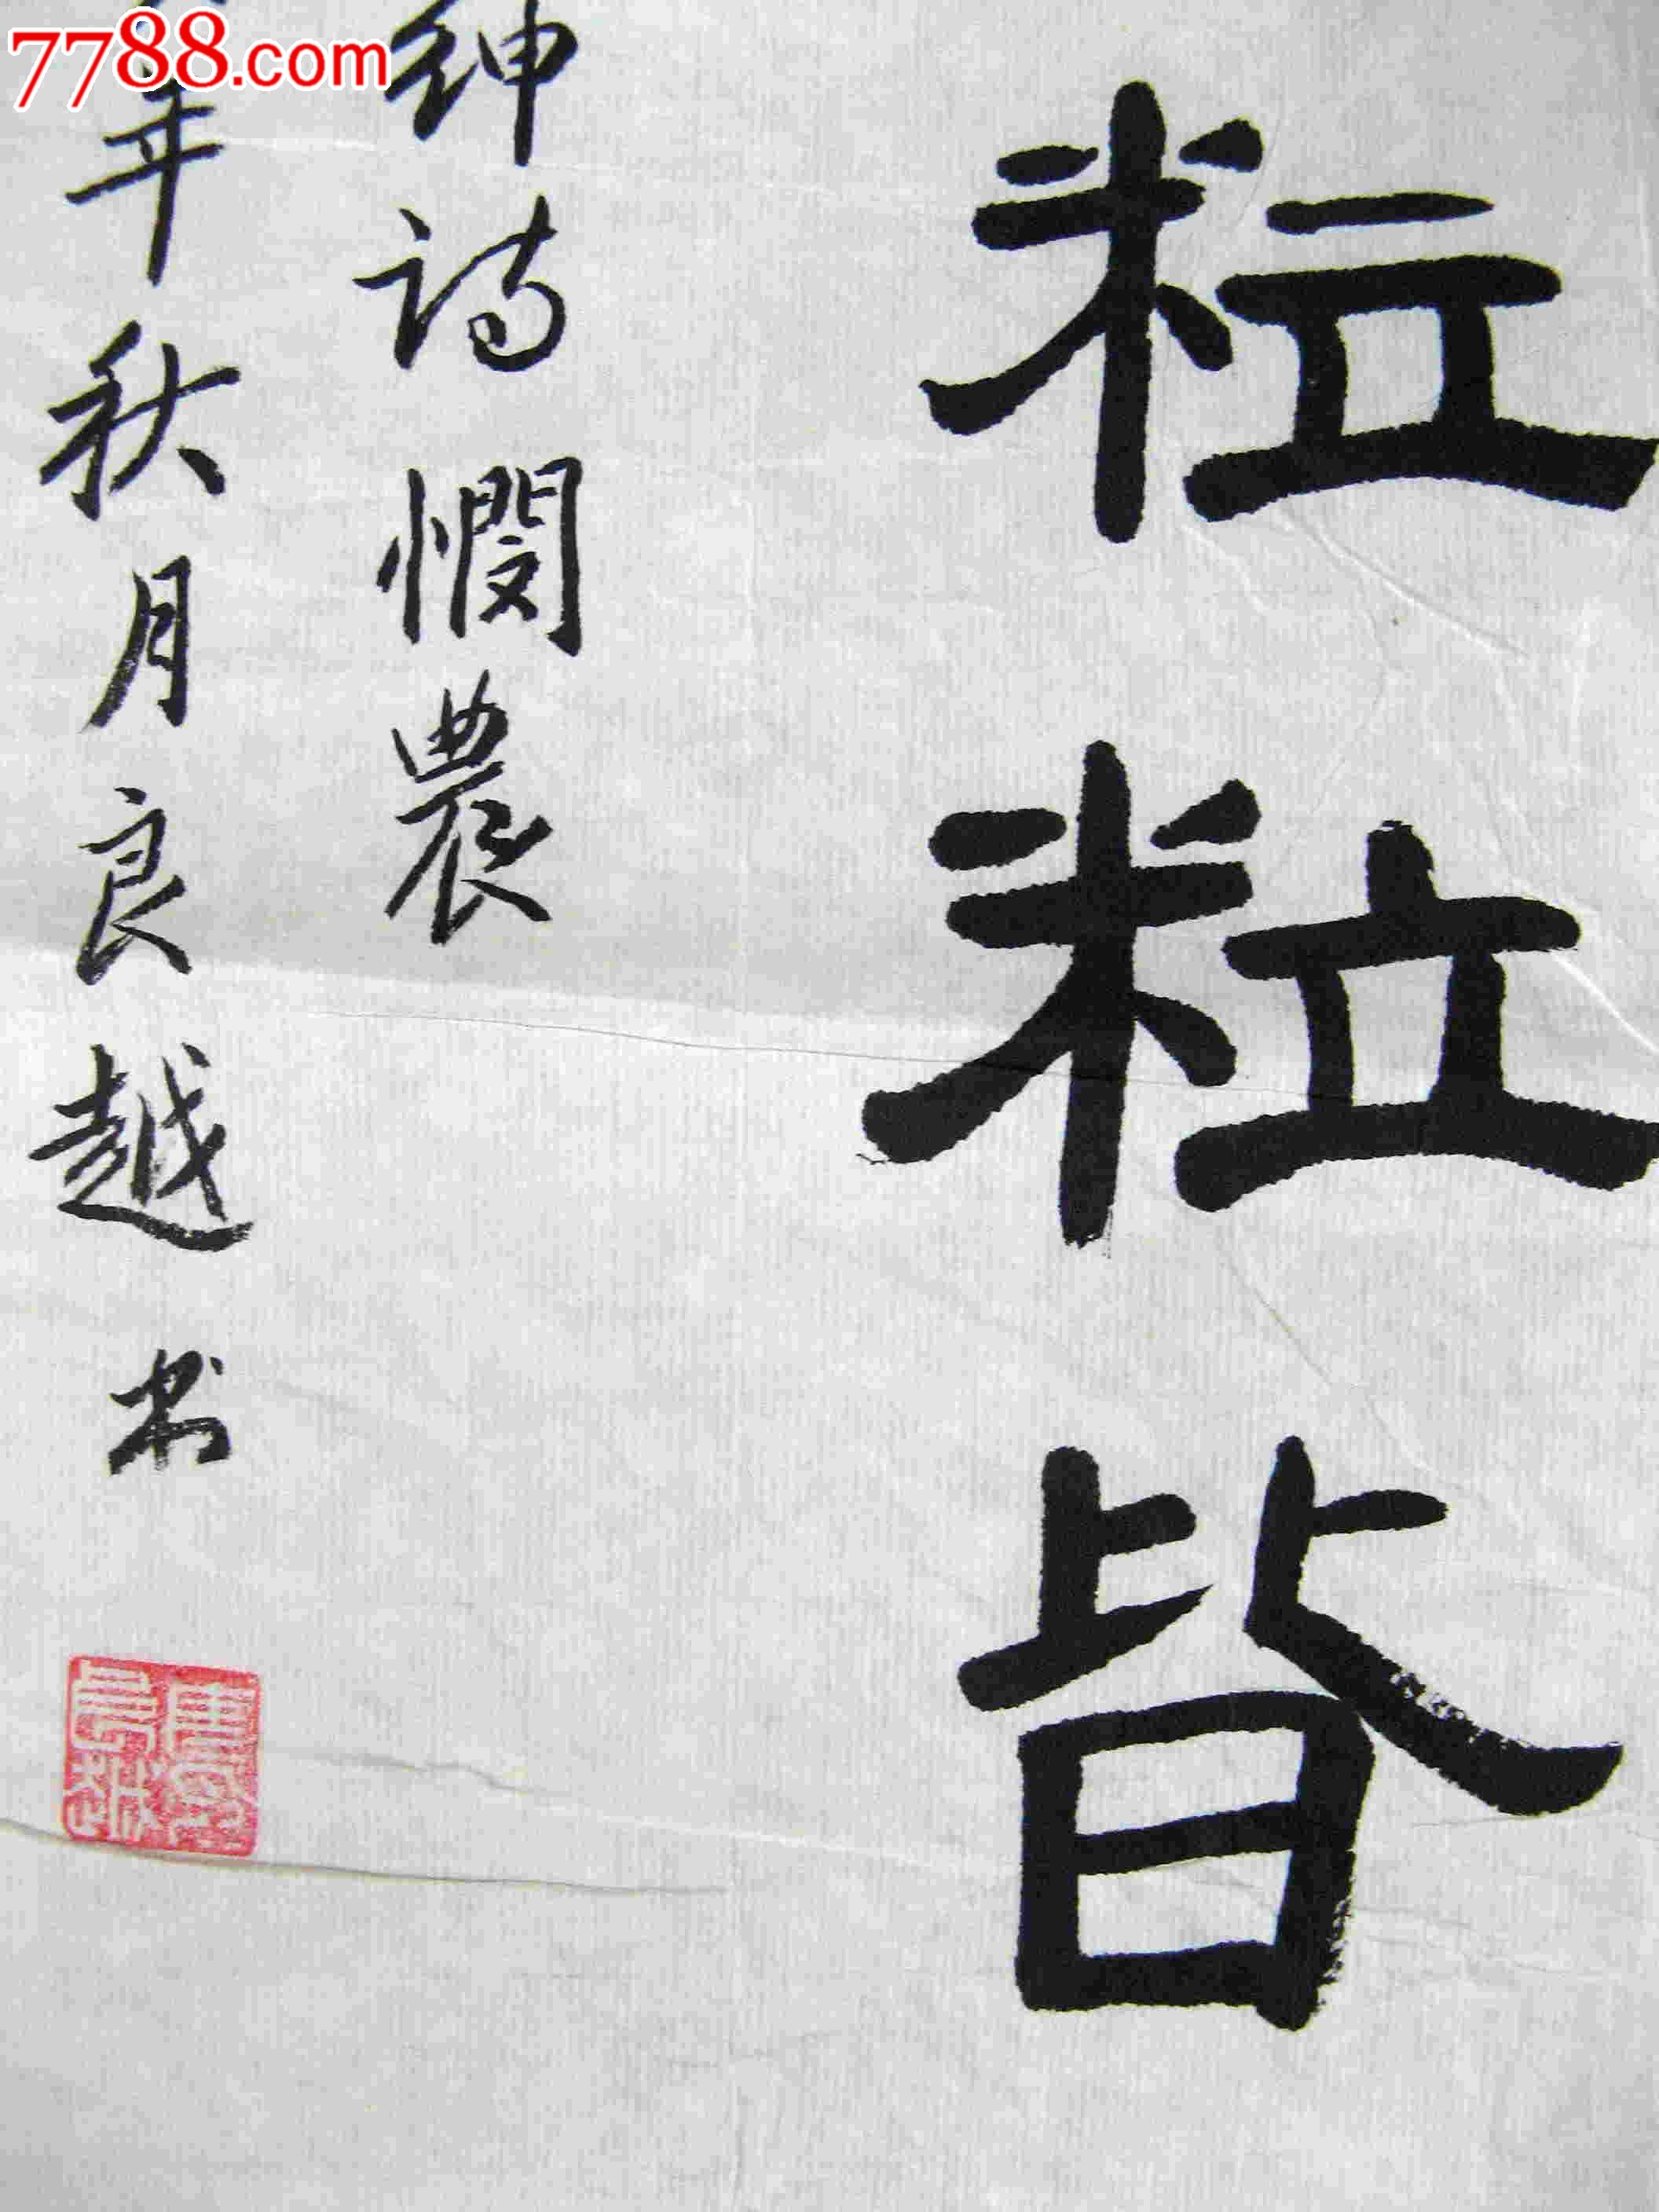 7788.com
粒粒皆
紳詩憫農
年秋月良越书